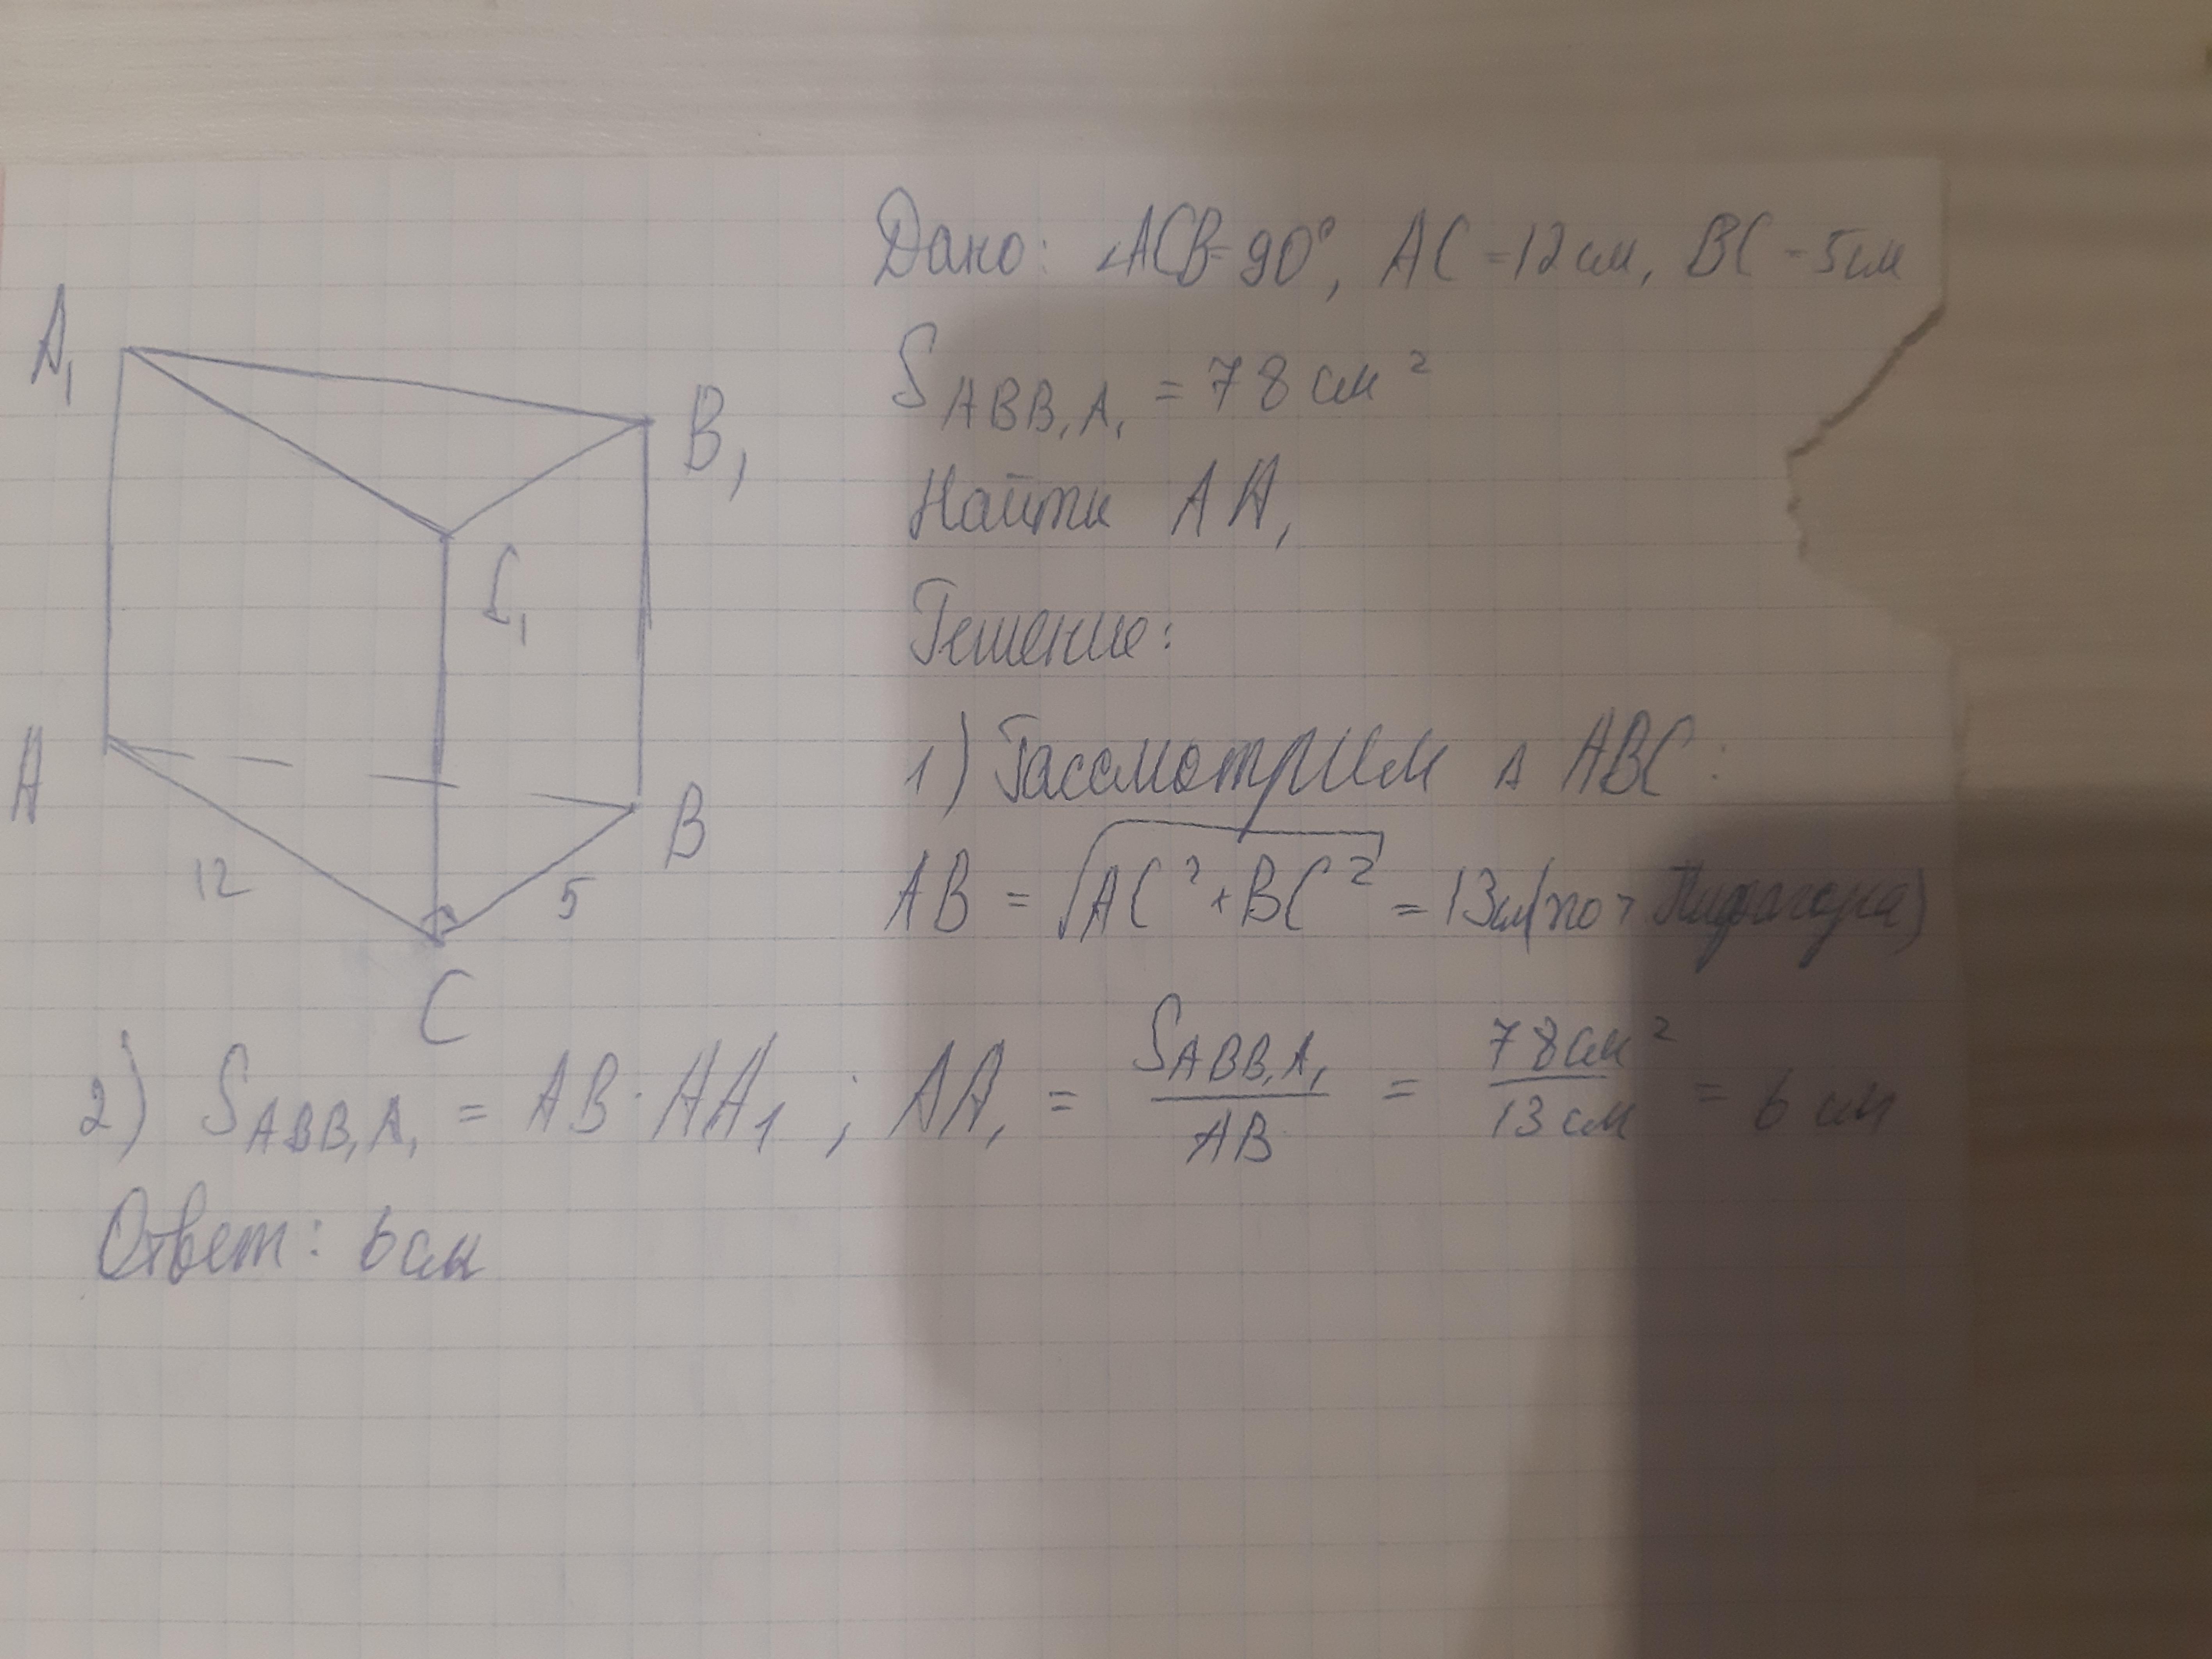 Дано: ∠ACB=90°, AC=12см, BC-5см
S ABB₁A₁ = 78 см²
Найти AA₁
Решение:
1) Рассмотрим △ ABC:
AB = √AC²+BC² = 13см(по т Пифагора)
A₁
B₁
C₁
A
B
12
5
C
2) S ABB₁A₁ = AB · AA₁ ; AA₁ = S ABB₁A₁ / AB = 78см² / 13см = 6 см
Ответ: 6см